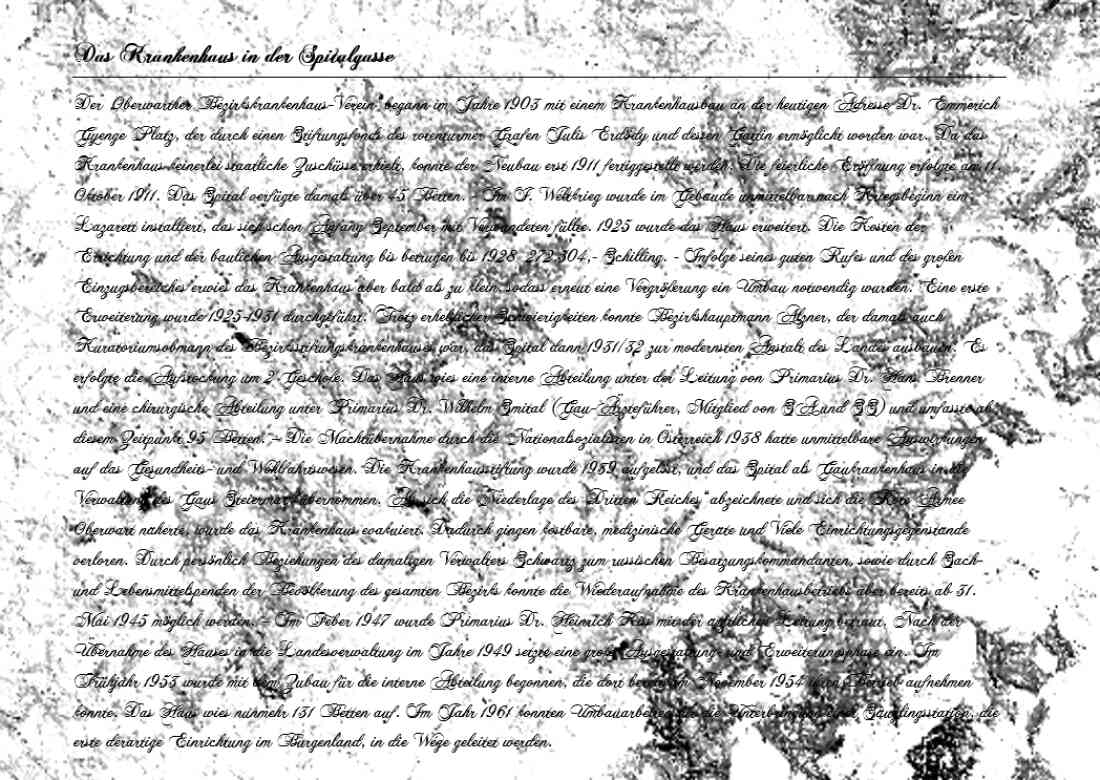 Das Krankenhaus in der Spitalgasse
Der Oberwarther „Bezirkskrankenhaus-Verein“ begann im Jahre 1903 mit einem Krankenhausbau an der heutigen Adresse Dr. Emmerich
Gyenge Platz, der durch einen Stiftungsfonds des rotenturmer Grafen Julis Erdödy und dessen Gattin ermöglicht worden war. Da das
Krankenhaus keinerlei staatliche Zuschüsse erhielt, konnte der Neubau erst 1911 fertiggestellt werden. Die feierliche Eröffnung erfolgte am 11.
Oktober 1911. Das Spital verfügte damals über 45 Betten. - Im I. Weltkrieg wurde im Gebäude unmittelbar nach Kriegsbeginn ein
Lazarett installiert, das sich schon Anfang September mit Verwundeten füllte. 1925 wurde das Haus erweitert. Die Kosten der
Errichtung und der baulichen Ausgestaltung bis betrugen bis 1928 272.304,- Schilling. - Infolge seines guten Rufes und des großen
Einzugsbereiches erwies das Krankenhaus aber bald als zu klein, sodass erneut eine Vergrößerung ein Umbau notwendig wurden. Eine erste
Erweiterung wurde 1925-1931 durchgeführt. Trotz erheblicher Schwierigkeiten konnte Bezirkshauptmann Azner, der damals auch
Kuratoriumsobmann des Bezirksstiftungskrankenhauses war, das Spital dann 1931/32 zur modernsten Anstalt des Landes ausbauen. Es
erfolgte die Aufstockung um 2 Geschoße. Das Haus wies eine interne Abteilung unter der Leitung von Primarius Dr. Hans Brenner
und eine chirurgische Abteilung unter Primarius Dr. Wilhelm Smital (Gau-Ärzteführer, Mitglied von SA und SS) und umfasste ab
diesem Zeitpunkt 95 Betten. - Die Machtübernahme durch die Nationalsozialisten in Österreich 1938 hatte unmittelbare Auswirkungen
auf das Gesundheits- und Wohlfahrtswesen. Die Krankenhausstiftung wurde 1939 aufgelöst, und das Spital als Gaukrankenhaus in die
Verwaltung des Gaus Steiermark übernommen. Als sich die Niederlage des „Dritten Reiches“ abzeichnete und sich die Rote Armee
Oberwart näherte, wurde das Krankenhaus evakuiert. Dadurch gingen kostbare, medizinische Geräte und Viele Einrichtungsgegenstände
verloren. Durch persönlich Beziehungen des damaligen Verwalters Schwartz zum russischen Besatzungskommandanten, sowie durch Sach-
und Lebensmittelspenden der Bevölkerung des gesamten Bezirks konnte die Wiederaufnahme des Krankenhausbetriebs aber bereits ab 31.
Mai 1945 möglich werden. - Im Feber 1947 wurde Primarius Dr. Heinrich mit der ärztlichen Leitung betraut. Nach der
Übernahme des Hauses in die Landesverwaltung im Jahre 1949 setzte eine große Ausgestaltungs- und Erweiterungsphase ein. Im
Frühjahr 1953 wurde mit dem Zubau für die interne Abteilung begonnen, die dort bereits im November 1954 ihren Betrieb aufnehmen
konnte. Das Haus wies nunmehr 131 Betten auf. Im Jahr 1961 konnten Umbauarbeiten für die Unterbringung einer Säuglingsstation, die
erste derartige Einrichtung im Burgenland, in die Wege geleitet werden.